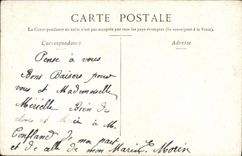 CARTE POSTALE
(La Correspondance au recto n'est pas acceptée par tous les pays étrangers (Se renseigner à la Poste).
Correspondance
Adresse
Pense à vous
Bons Baisers pour
vous et Mademoiselle
Mérielle Bien de
à Mr
Confland De ma part
et de celle de mon Mari E. Morin